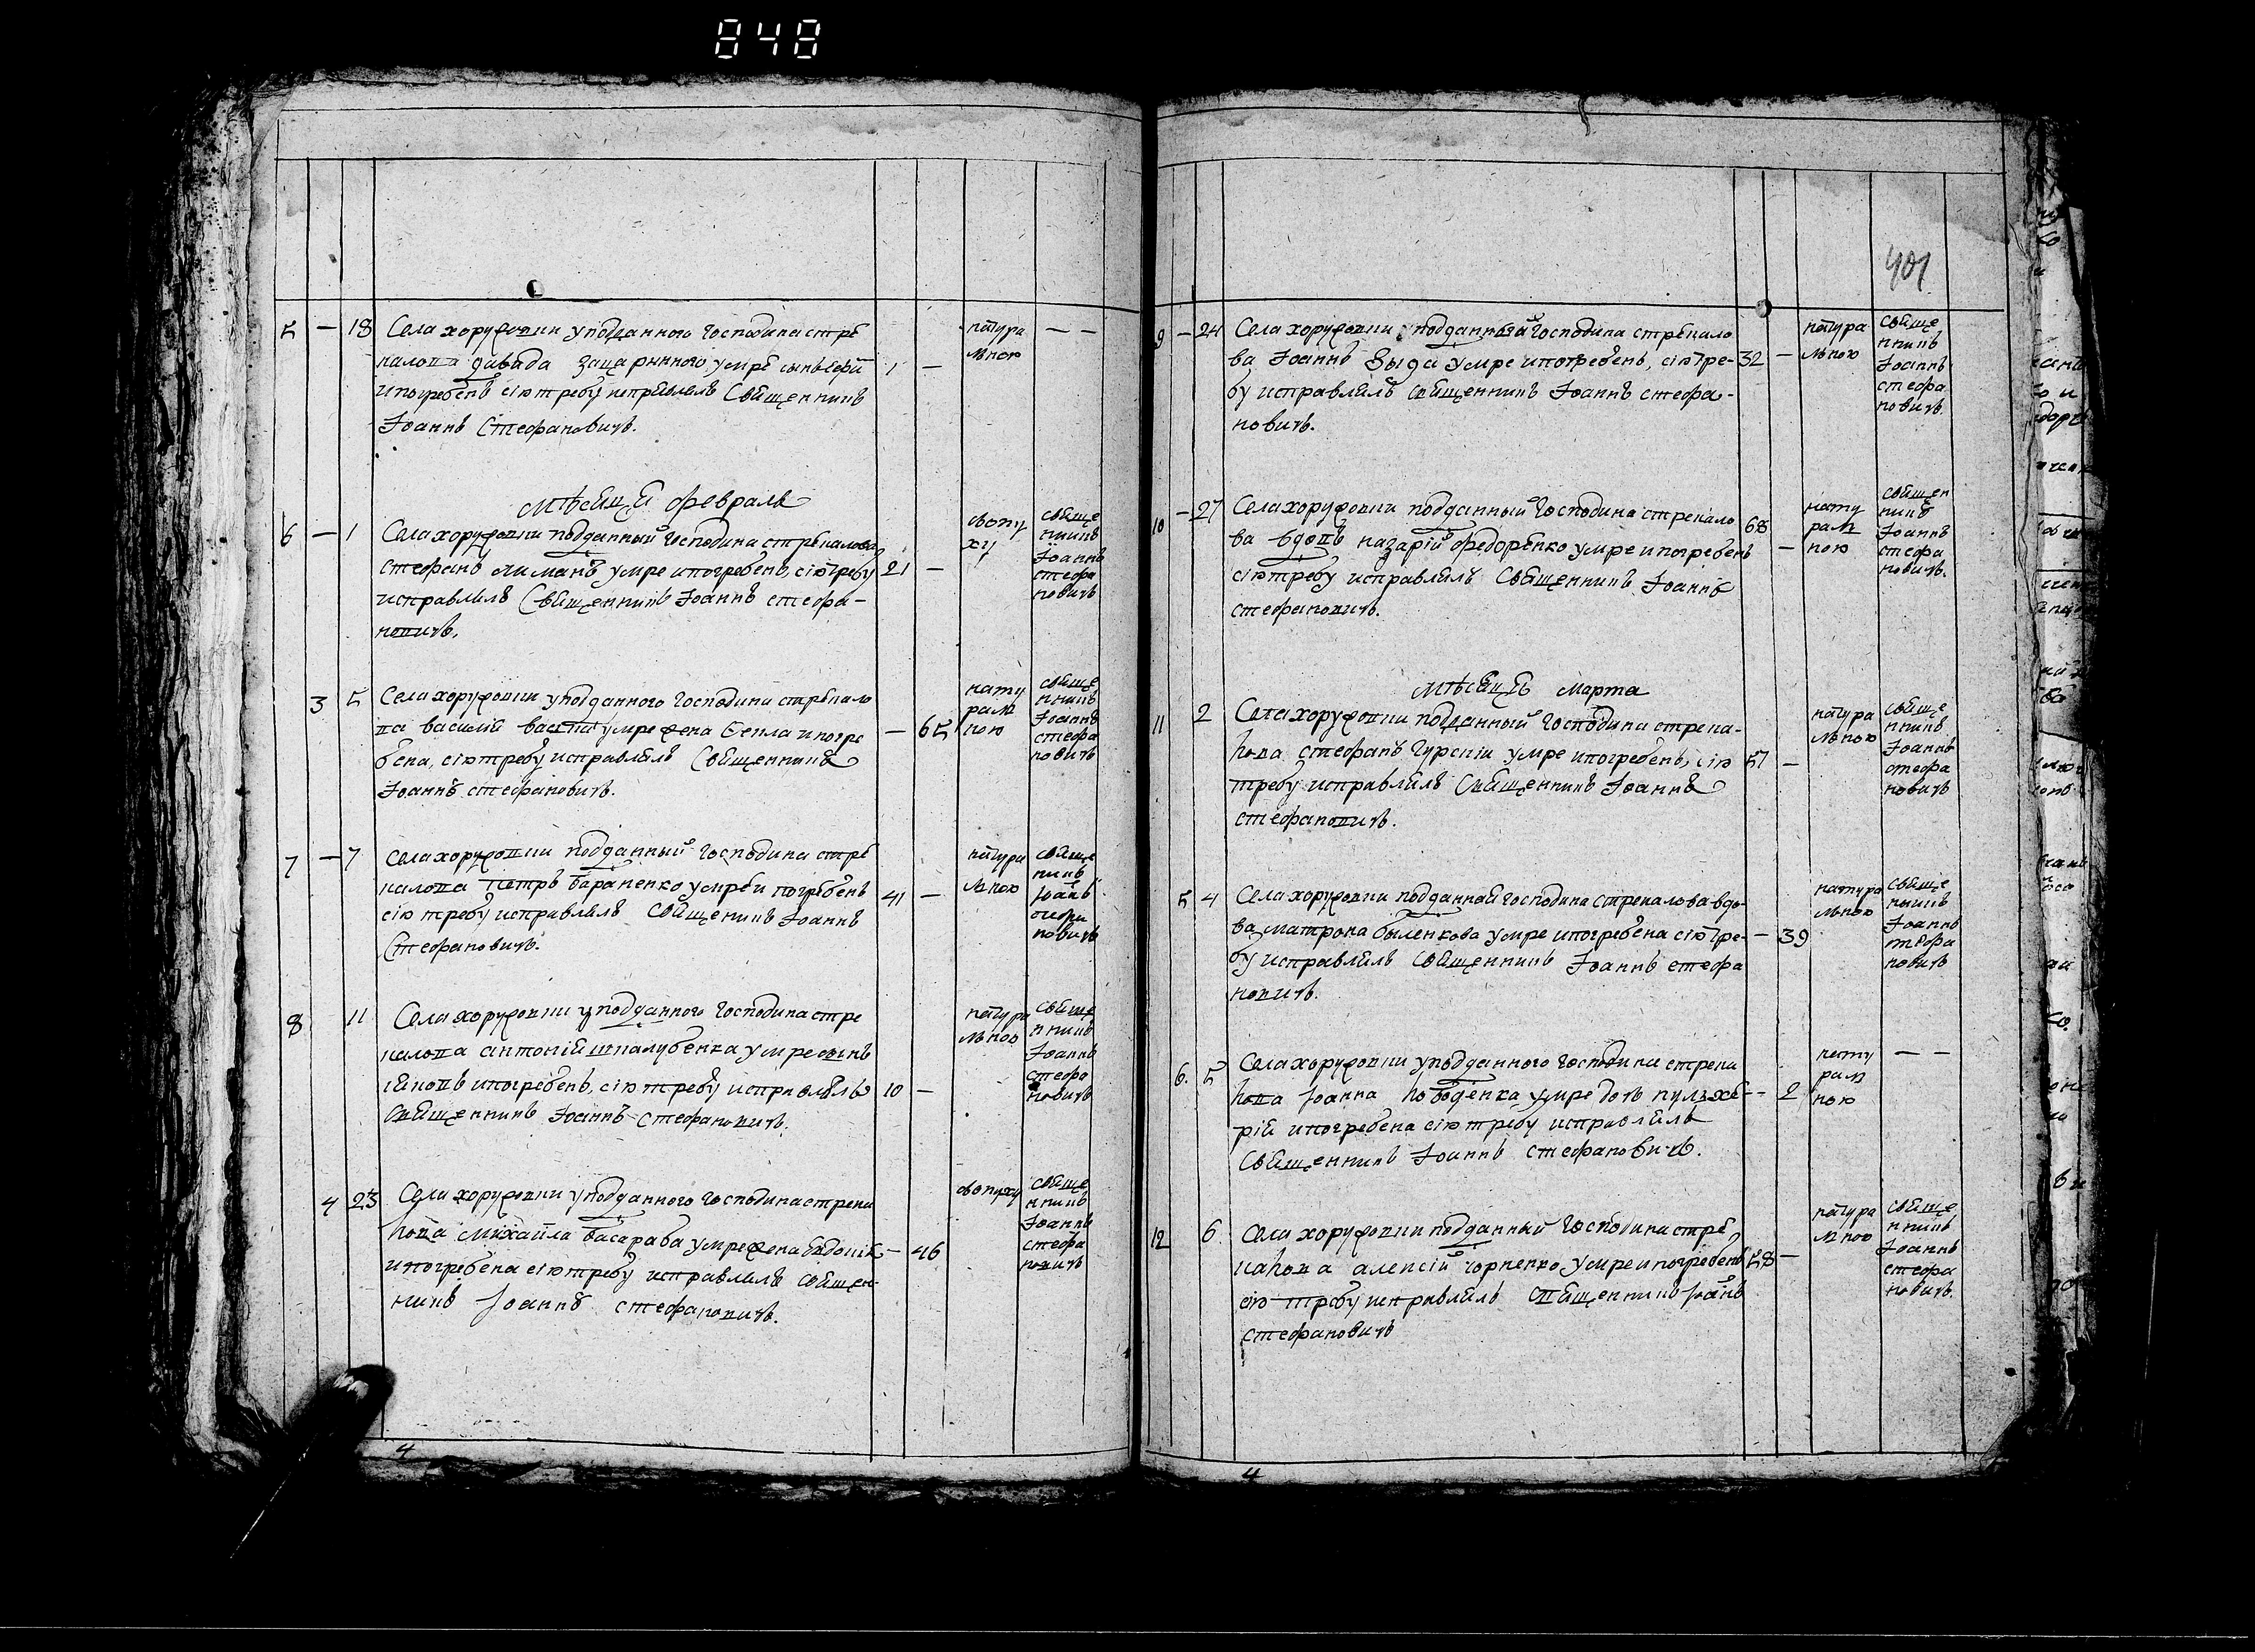 848
5 — 18 Села хоружовки у подданного Господина стре
калова давида зацарынного умре сынъ
и погребенъ сію требу исправлялъ Священникъ
Іоаннъ Стефановичъ.
1 —
натура
льною
— —
Мѣсяцъ февраль
6 — 1 Села хоружовки подданный Господина стрекалова
стефанъ лиманъ умре и погребенъ, сію требу
исправлялъ Священникъ Іоаннъ стефа-
новичъ.
21 —
свяще
нникъ
Іоаннъ
стефа
новичъ
3 5 Села хоружовки у подданного Господина стрекало
ва василія умре жена Fекла и погре
бена, сію требу исправлялъ Священникъ
Іоаннъ стефановичъ.
— 65
нату
рал
ною
свяще
нникъ
Іоаннъ
стефа
новичъ
7 — 7 села хоружовки подданный господина стре
калова Петръ Бараненко умре и погребенъ
сію требу исправлялъ Священикъ Іоаннъ
Стефановичъ.
41 —
натура
льною
свяще
никъ
Іоанъ
стефа
новичъ
8 11 Села хоружовки у подданного Господина стре
калова антоній шпалубенка умре сынъ
и погребенъ, сію требу исправлялъ
Священникъ Іоаннъ Стефановичъ.
10 —
натура
льною
свяще
нникъ
Іоаннъ
стефа
новичъ
4 23 Села хоружовки у подданного Господина стрека
лова михаила басараба умре жена
и погребена сію требу исправлялъ Священ
никъ Іоаннъ стефановичъ.
— 46
свяще
нникъ
Іоаннъ
стефа
новичъ
4
401
9 — 24 Села хоружовки подданный Господина стрекало
ва Іоаннъ Зыда умре и погребенъ, сію тре-
бу исправлялъ Священникъ Іоаннъ стефа-
новичъ.
32 —
натура
льною
свяще
нникъ
Іоаннъ
стефа
новичъ
10 — 27 Села хоружовки подданный Господина стрекало
ва вдовъ назарій федоренко умре и погребенъ
сію требу исправлялъ Священникъ Іоаннъ
стефановичъ.
68 —
нату
рал
ною
священ
никъ
Іоаннъ
стефа
новичъ.
Мѣсяцъ марта
11 2 Села хоружовки подданный Господина стрека-
лова стефанъ Гурскій умре и погребенъ, сію
требу исправлялъ Священникъ Іоаннъ
стефановичъ.
57 —
натура
льною
свяще
нникъ
Іоаннъ
стефа
новичъ
5 4 Села хоружовки подданной господина стрекалова вдо-
ва матрона быленкова умре и погребена сію тре-
бу исправлялъ Священникъ Іоаннъ стефа
новичъ.
— 39
натура
льною
свяще
нникъ
Іоаннъ
стефа
новичъ
6. 5 Села хоружовки у подданного Господина стрека
лова Іоанна умре дочь пулхе
рій и погребена сію требу исправлялъ
Священникъ Іоаннъ стефановичъ.
— 2
нату
рал
ною
— —
12 6 Села хоружовки подданный Господина стре
калова алексій чорненко умре и погребенъ
сію требу исправлялъ Священникъ Іоанъ
стефановичъ
58 —
натура
лною
свяще
нникъ
Іоаннъ
стефа
новичъ.
4